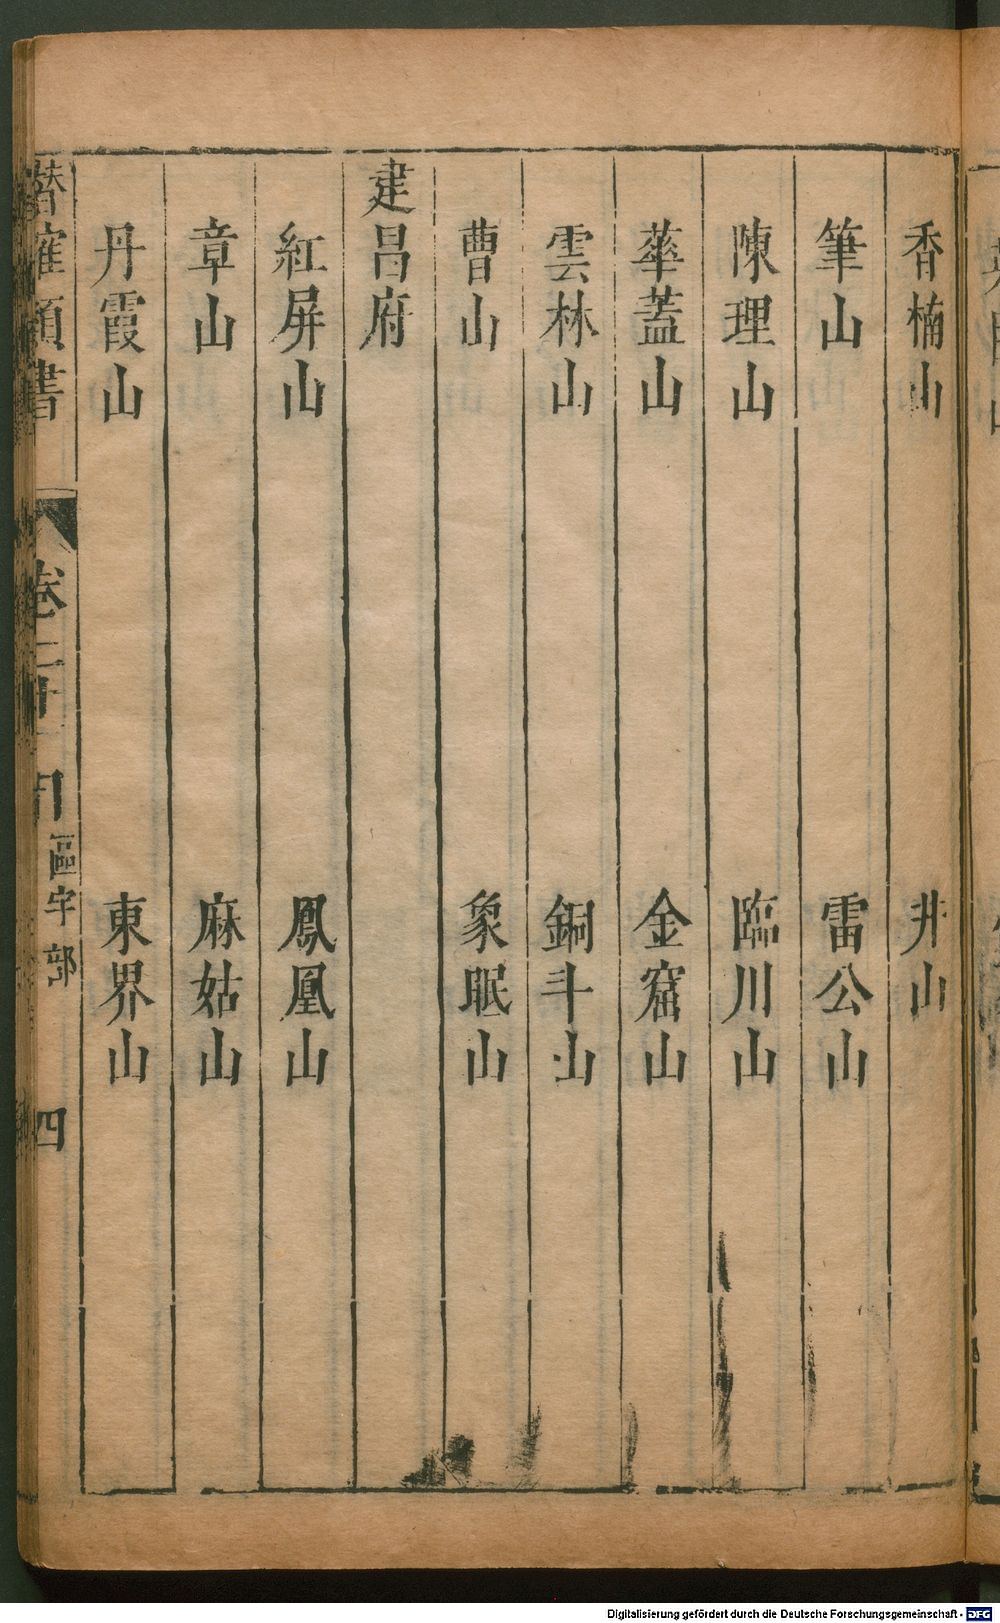 香楠山 井山
筆山 雷公山
陳理山 臨川山
華蓋山 金窟山
雲林山 銅斗山
曹山 象眠山
建昌府
紅屏山 鳳凰山
章山 麻姑山
丹霞山 東界山
潛確類書 卷二十 區宇部 四
Digitalisierung gefördert durch die Deutsche Forschungsgemeinschaft - DFG